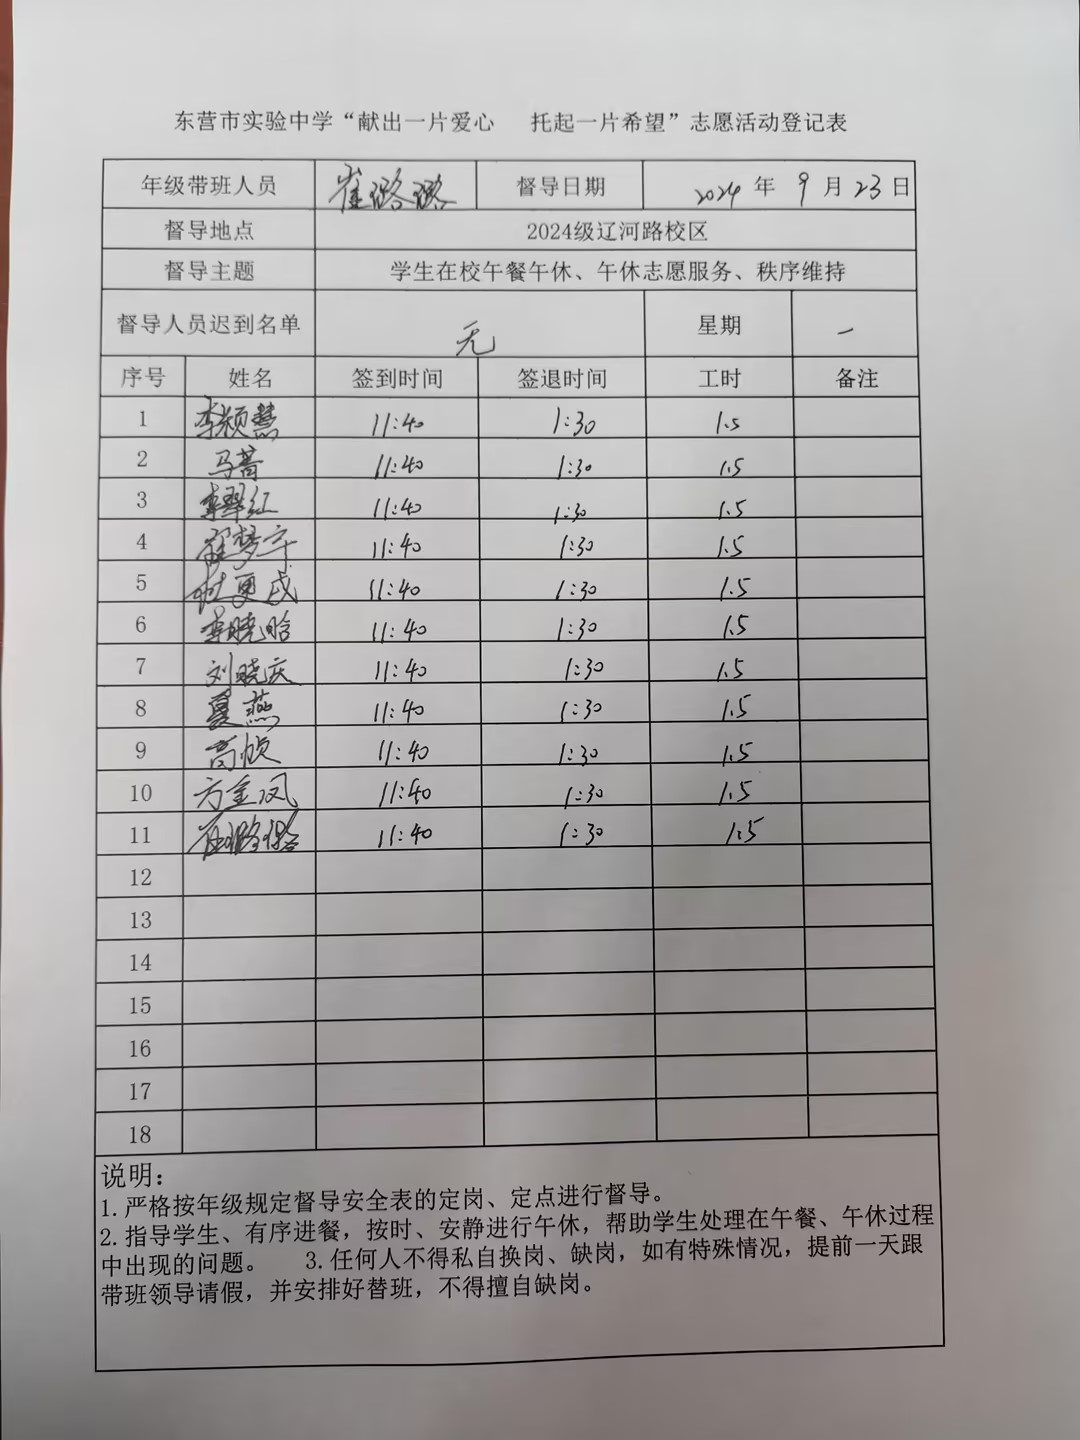 东营市实验中学“献出一片爱心 托起一片希望”志愿活动登记表
年级带班人员 崔璐璐 督导日期 2024 年 9 月 23 日
督导地点 2024级辽河路校区
督导主题 学生在校午餐午休、午休志愿服务、秩序维持
督导人员迟到名单 无 星期 一
序号 姓名 签到时间 签退时间 工时 备注
1 李颖慧 11:40 1:30 1.5
2 马蕾 11:40 1:30 1.5
3 李翠红 11:40 1:30 1.5
4 崔梦宇 11:40 1:30 1.5
5 11:40 1:30 1.5
6 李晓晗 11:40 1:30 1.5
7 刘晓庆 11:40 1:30 1.5
8 夏燕 11:40 1:30 1.5
9 高桢 11:40 1:30 1.5
10 方金凤 11:40 1:30 1.5
11 崔璐璐 11:40 1:30 1.5
12
13
14
15
16
17
18
说明：
1.严格按年级规定督导安全表的定岗、定点进行督导。
2.指导学生、有序进餐，按时、安静进行午休，帮助学生处理在午餐、午休过程
中出现的问题。 3.任何人不得私自换岗、缺岗，如有特殊情况，提前一天跟
带班领导请假，并安排好替班，不得擅自缺岗。